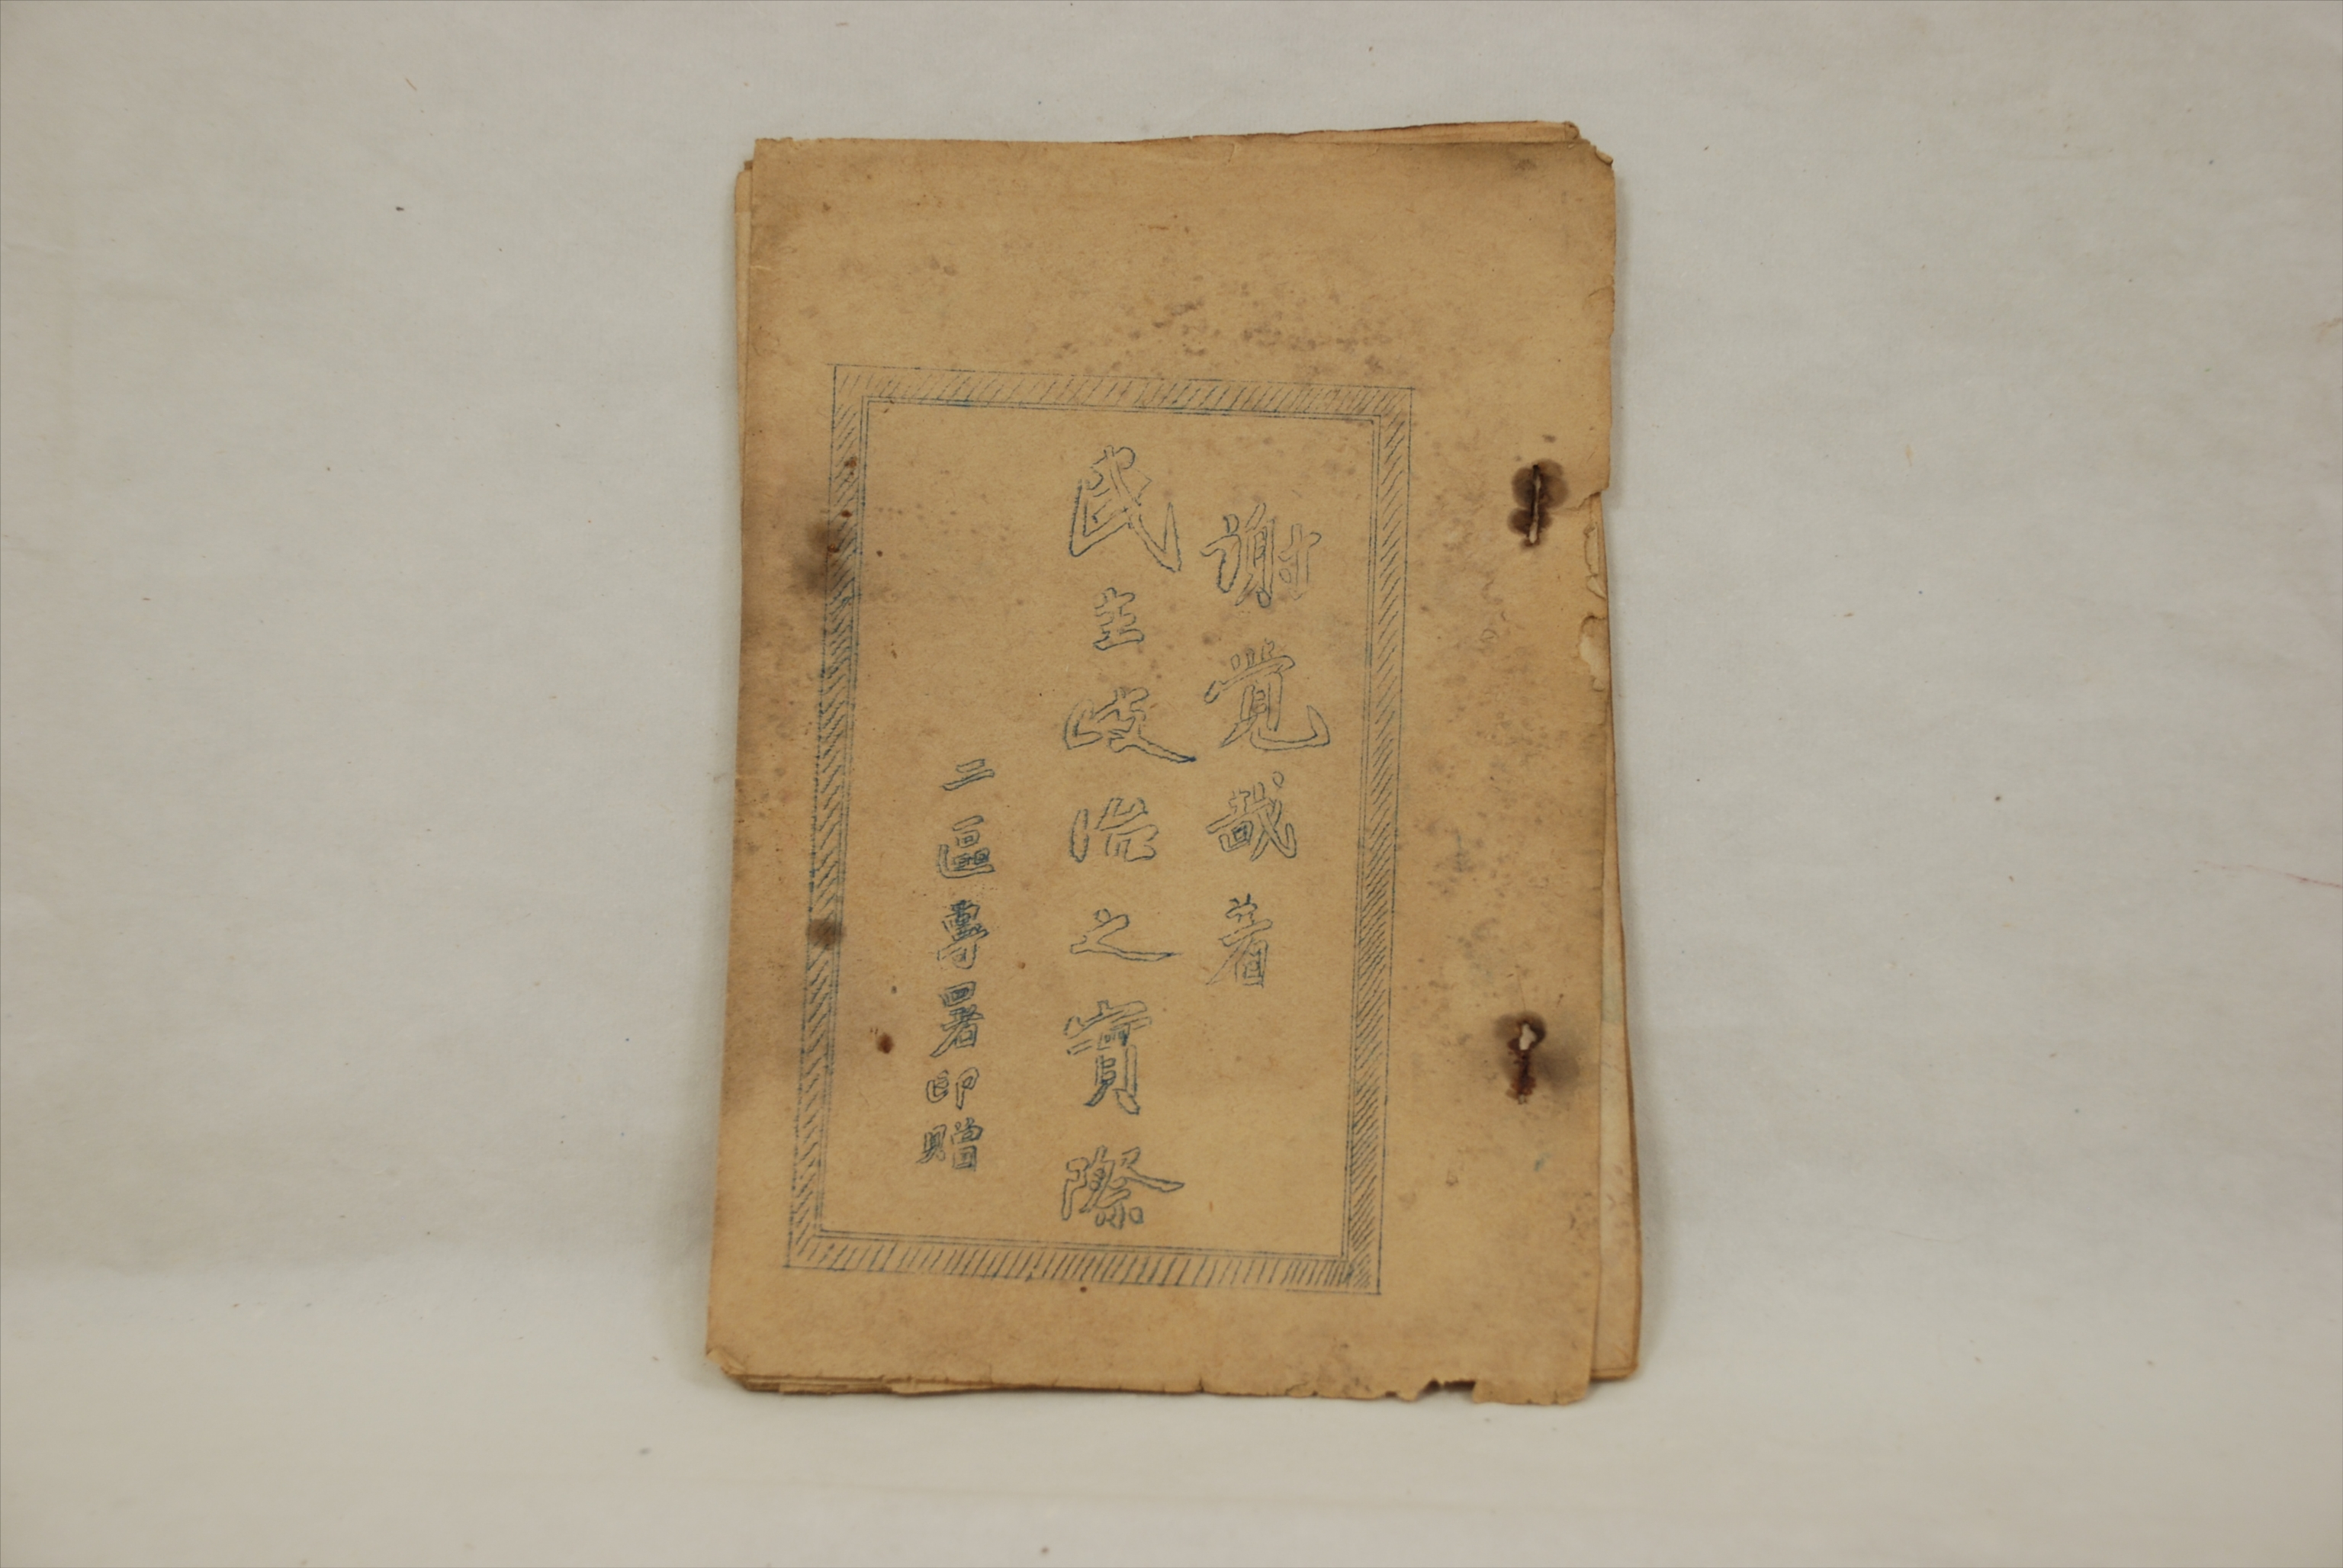 謝覺哉著
民主政治之實際
二區專署印贈